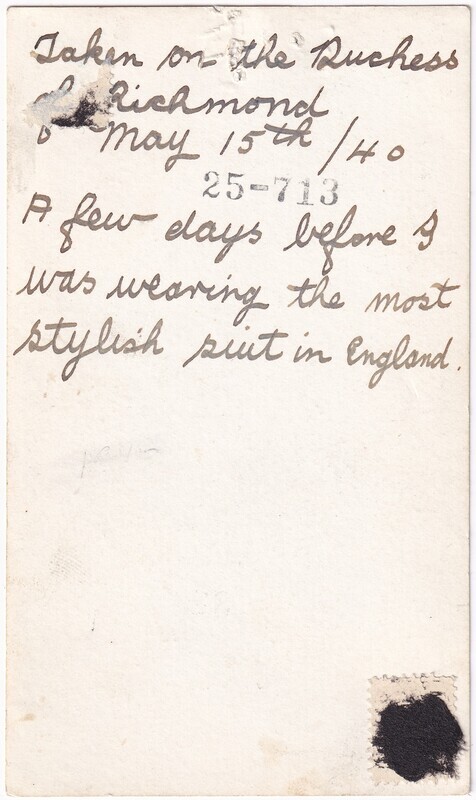 Taken on the Duchess
of Richmond
May 15th/40
25-713
A few days before I
was wearing the most
stylish suit in England.